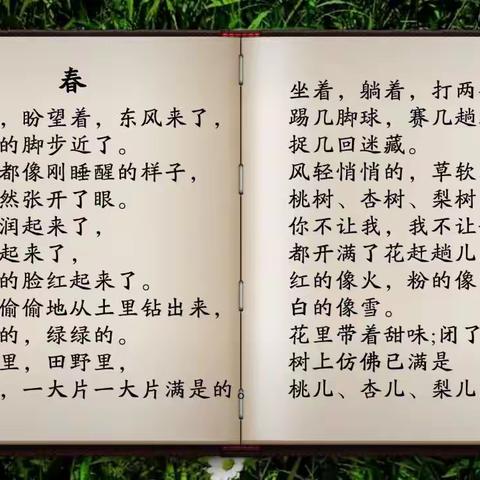 春
，盼望着，东风来了，
的脚步近了。
都像刚睡醒的样子，
然张开了眼。
润起来了，
起来了，
的脸红起来了。
偷偷地从土里钻出来，
的，绿绿的。
里，田野里，
，一大片一大片满是的。
坐着，躺着，打两
踢几脚球，赛几趟
捉几回迷藏。
风轻悄悄的，草软
桃树、杏树、梨树
你不让我，我不让
都开满了花赶趟儿
红的像火，粉的像
白的像雪。
花里带着甜味;闭了
树上仿佛已满是
桃儿、杏儿、梨儿